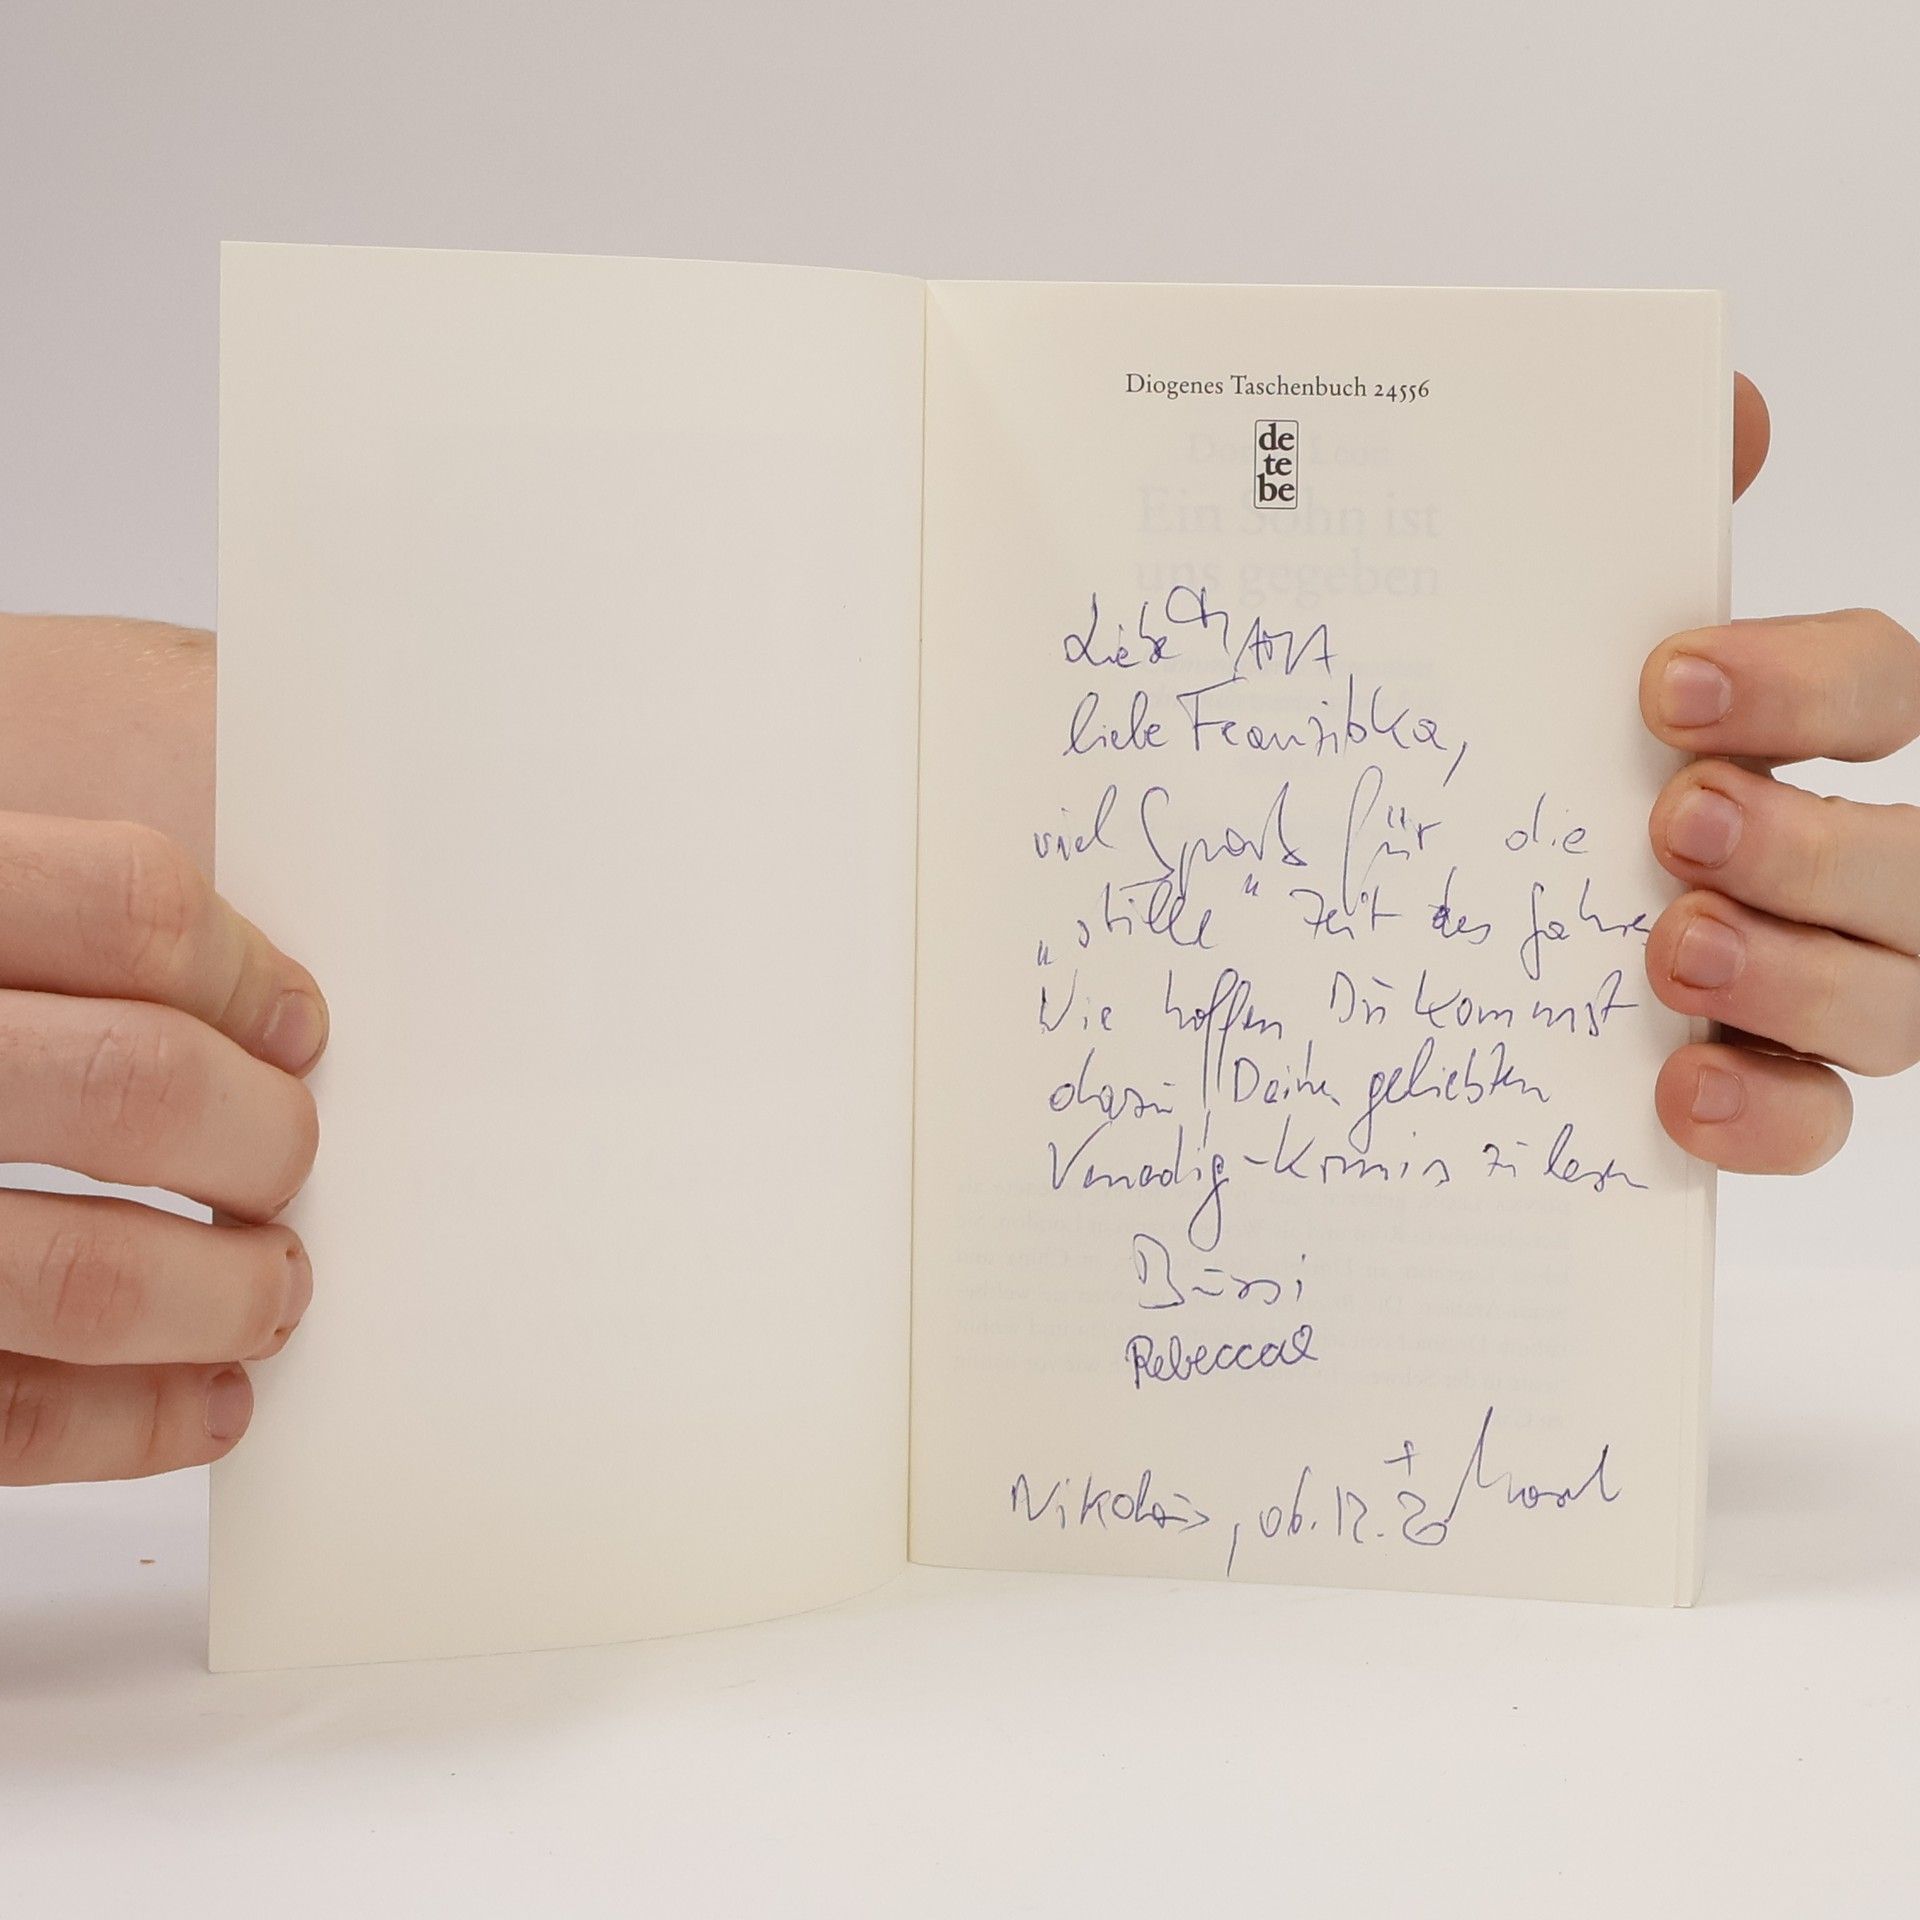 Diogenes Taschenbuch 24556
de
te
be
Donna Leon
Ein Sohn ist
uns gegeben
Liebe
liebe Franziska,
viel Spaß für die
„stille" Zeit des Jahres
Wir hoffen Du kommst
dazu Deine geliebten
Venedig-Krimis zu lesen
Bussi
Rebecca
Nikolaus, 06.12.20